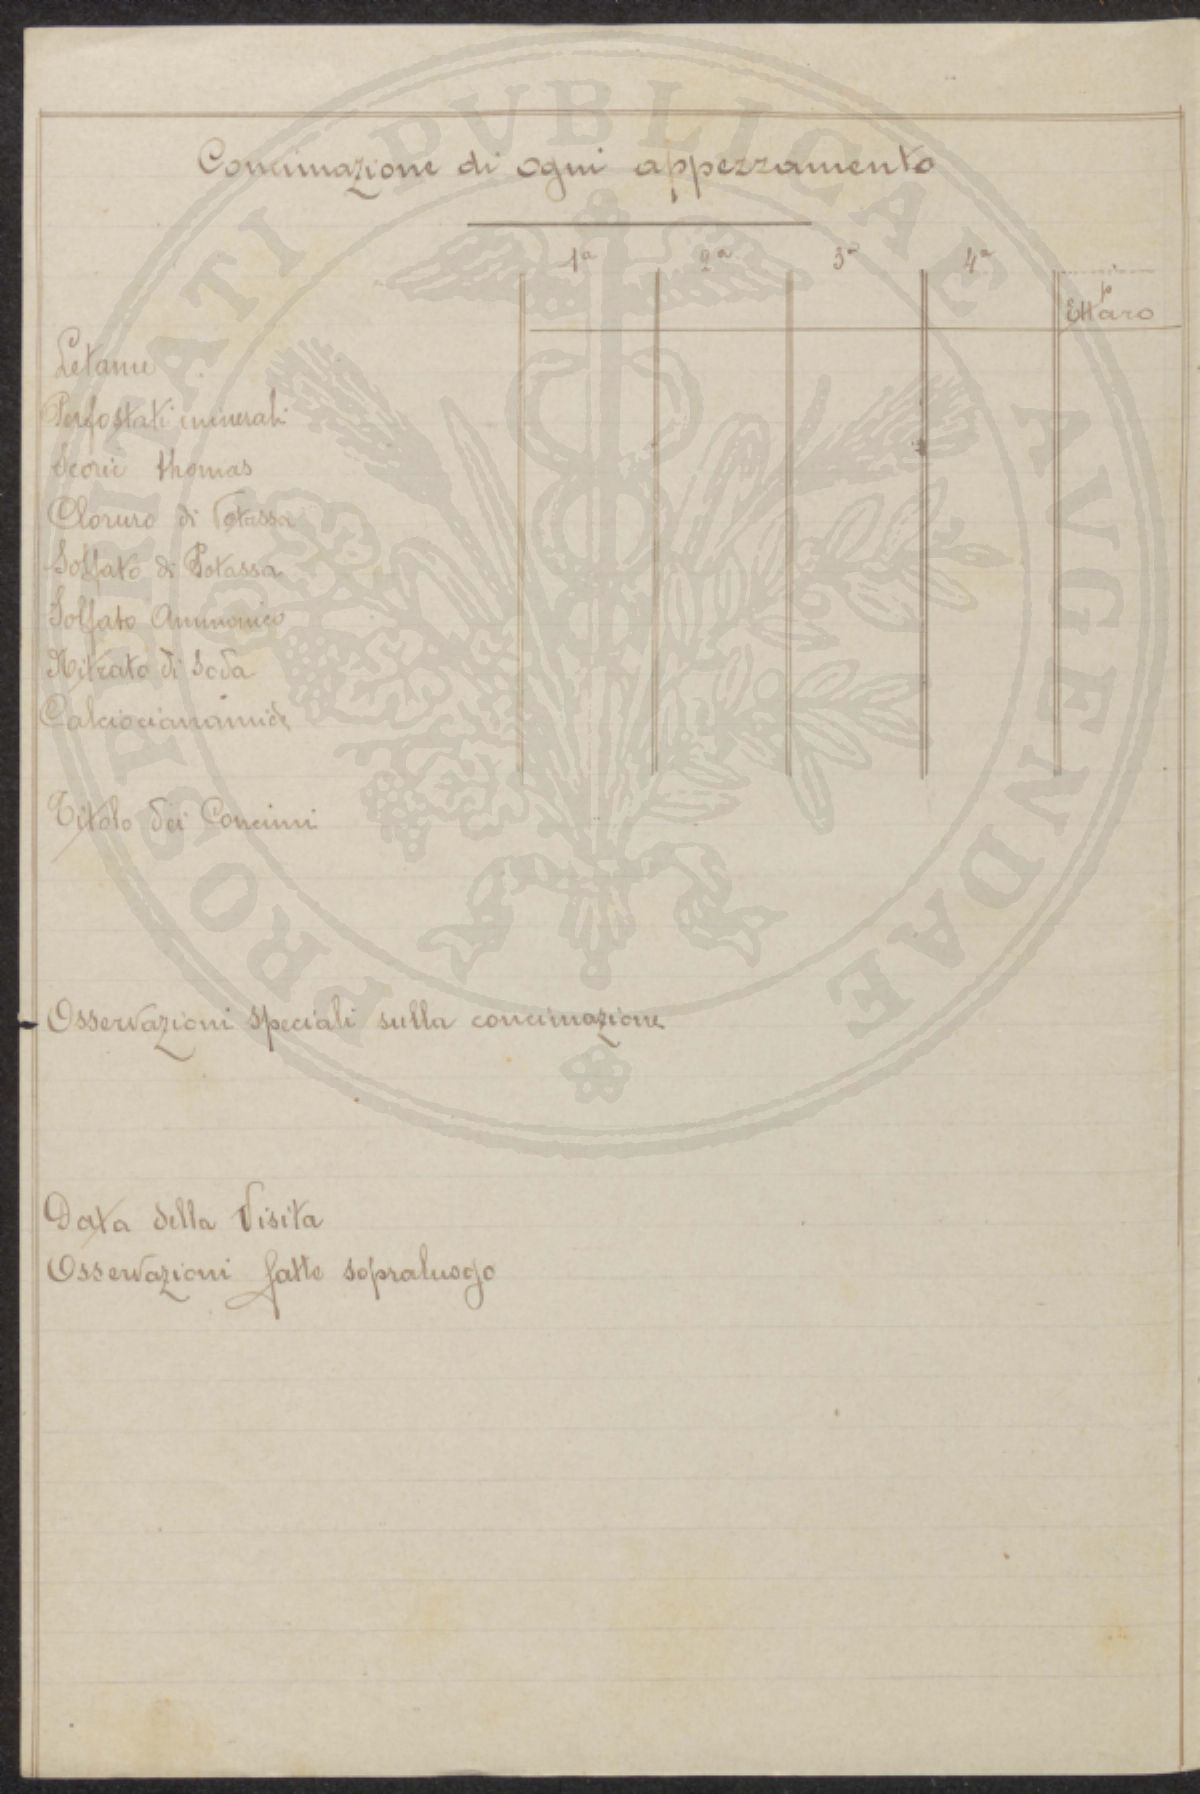 Concimazione di ogni appezzamento
1a 2a 3a 4a
p
Ettaro
Letame
Perfosfati minerali
Scorie thomas
Cloruro di Potassa
Solfato di Potassa
Solfato Ammonico
Nitrato di Soda
Calciocianamide
Titolo dei Concimi
Osservazioni speciali sulla concimazione
Data della Visita
Osservazioni fatte sopraluogo
PROSPERITATI PVBLICAE AVGENDAE